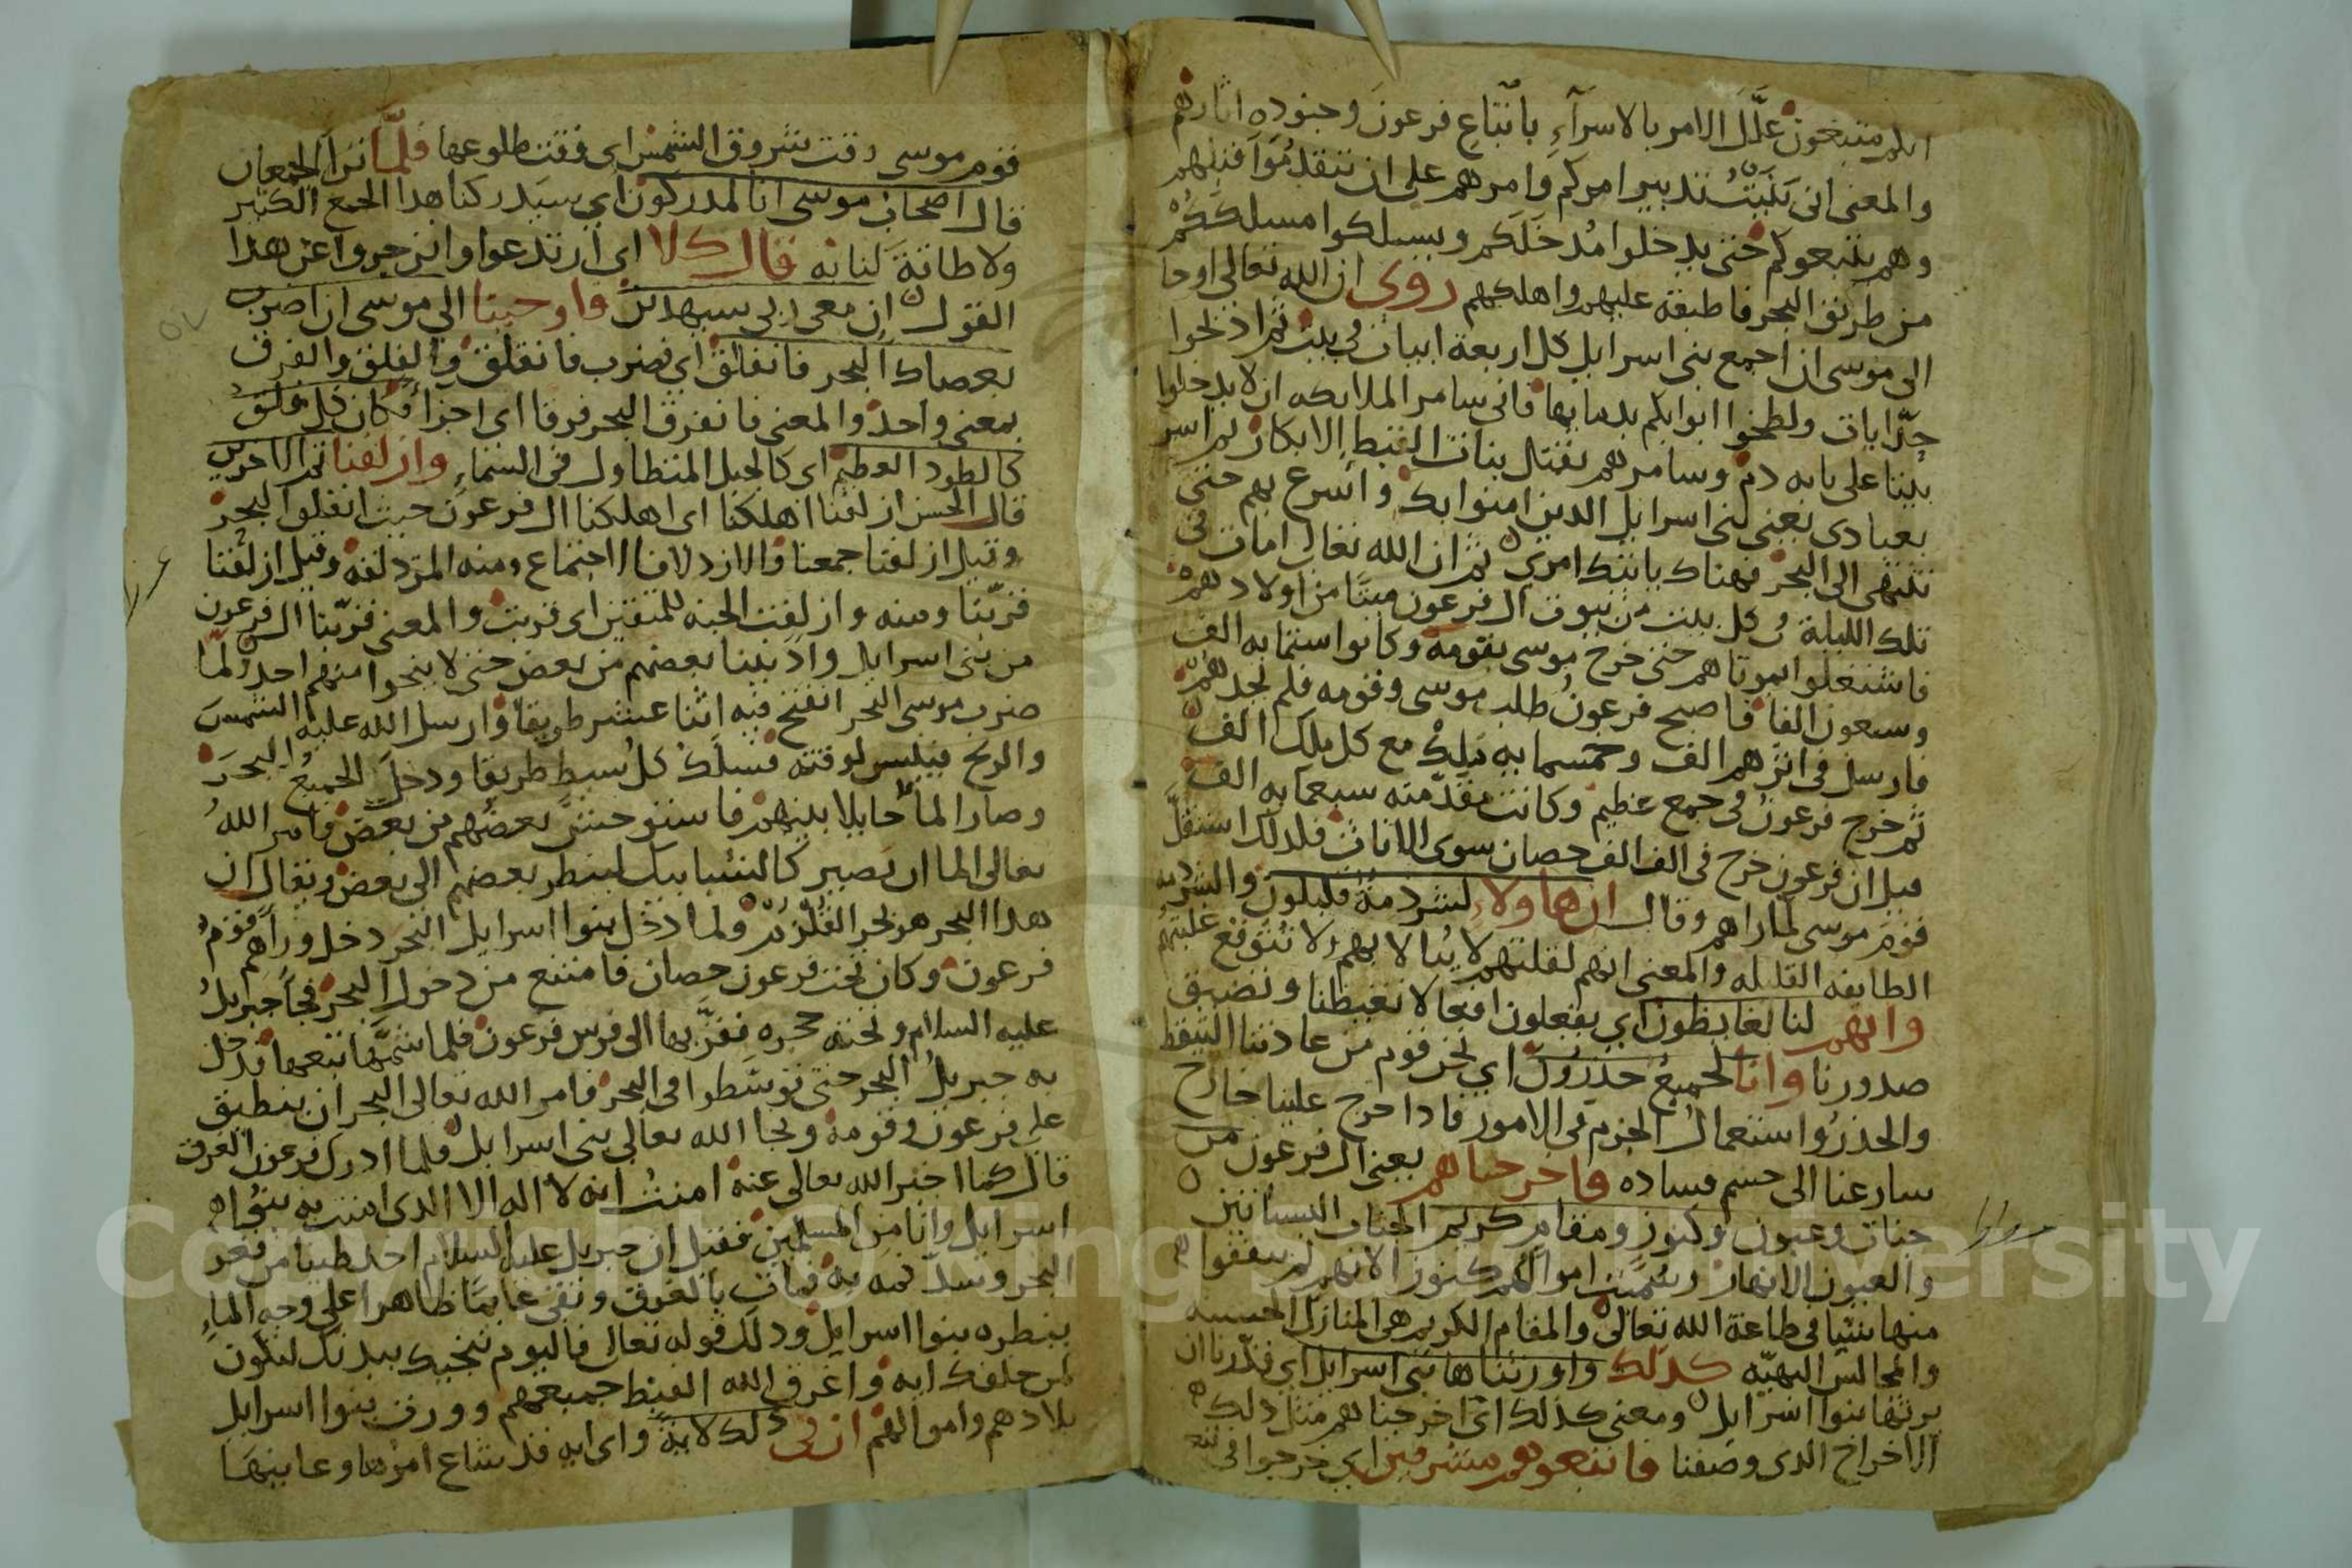 انكم متبعون علّل الامر بالاسرآء باتّباع فرعون وجنوده اثارهم
والمعنى انى بَنَيْتُ تدبير امركم وامرهم على ان تتقدموا قبلهم
وهم يتبعوكم حتى يدخلوا مُدخلَكم ويسلكوا مسلككم
من طريق البحر فاطبقه عليهم واهلكهم روى ان الله تعالى اوحا
الى موسى ان اجمع بنى اسرايل كل اربعة ابيات فى بيت ثم اذبحوا
ولطخوا ابوابكم بدمايها فانى سامر الملايكه ان لا يدخلوا
بيتا على بابه دم وسامرهم بقتل بنات القبط الابكار ثم اسر
بعبادى يعنى بنى اسرايل الدين امنوا بك واسرع بهم حتى
تنتهى الى البحر فهناك ياتيك امرى ثم ان الله تعالى امات فى
تلك الليلة فى كل بيت من بيوت ال فرعون ميتا من اولادهم
فاشتغلوا بموتاهم حتى خرج موسى بقومه وكانوا ستمايه الف
وسبعون الفا فاصبح فرعون طلب موسى وقومه فلم يجدهم
فارسل فى اثرهم الف وخمسمايه مَلِكْ مع كل ملك الف
ثم خرج فرعونُ فى جمع عظيم وكانت مقدّمته سبعمايه الف
قيل ان فرعون خرج فى الف الف حصان سوى الاناث فلدلك استقلّ
قوم موسى لما راهم وقال ان هاولاء لشرذمة قليلون والشرذمه
الطايفه القليله والمعنى انهم لقلتهم لا يُبالا بهم ولا تتوقع غلبتهم
وانهم لنا لغايظون اي يفعلون افعالا تغيظنا وتضيق
صدورنا وانا لجميعُ حذرون اي نحن قوم من عادتنا التيقظ
والحذرُ واستعمال الحزم فى الامور فادا خرج علينا خارج
سارعنا الى حسم فساده فاخرجناهم يعنى ال فرعون من
جنات وعيون وكنوز ومقام كريم الجنات البساتين
والعيون الانهار وسُمِّيت اموالهم كنوز الانهم لم ينفقوا
منها شيا فى طاعة الله تعالى والمقام الكريم هى المنازل الحسنه
والمجالس البهيّه كدلك واورثناها بنى اسرايل اي قدّرنا ان
يرثها بنوا اسرايل ومعنى كدلك اى اخرجناهم مثل دلك
الاخراج الدى وصفنا فاتبعوهم مشرقين اي خرجوا فى
قوم موسى وقت شروق الشمس اى وقت طلوعها فلمّا ترآ الجمعان
قال اصحاب موسى انا لمدركون اي سيدركنا هدا الجمع الكثير
ولا طاقة لنا به قال كلا اي ارتدعوا وانزجروا عن هدا
القول ان معى ربى سيهدين فاوحينا الى موسى ان اضرب
بعصاك البحر فانفلق اي فضرب فانفلق والفلق والفرق
بمعنى واحد والمعنى فانفرق البحر فرقا اى اجزآ فكان كل فلق
كالطود العظيم اى كالجبل المتطاول فى السماء وازلفنا ثم الاخرين
قال الحسن ازلفنا اهلكنا اى اهلكنا ال فرعون حيث البحر
وقيل ازلفنا جمعنا والازدلاف الاجتماع ومنه المزدلفه وقيل ازلفنا
قرّبنا ومنه وازلفت الجنه للمتقين اى قربت والمعنى قرّبنا ال فرعون
من بنى اسرايل وادنينا بعضهم من بعض حتى لا ينجوا منهم احد ولمّا
ضرب موسى البحر انفتح فيه اثنا عشر طريقا وارسل الله عليه الشمس
والريح فيبس لوقته فسلك كل سبط طريقا ودخل الجميعُ البحرَ
وصار الماء حايلا بينهم فاستوحش بعضهم من بعض فامر اللهُ
تعالى الما ان يصير كالشبابيك لينظر بعضهم الى بعض ويقال ان
هدا البحر هو بحر القُلْزُم ولما دخل بنوا اسرايل البحر دخل ورآهم قوم
فرعون وكان تحت فرعون حصان فامتنع من دخول البحر فجآ جبريل
عليه السلام وتحته حجره فقرّبها الى فرس فرعون فلما شمّها اتبعها فدخل
به جبريلُ البحر حتى توسّطوا فى البحر فامر الله تعالى البحر ان ينطبق
على فرعون وقومه ونجا الله تعالى بنى اسرايل فلما ادرك فرعون الغرق
قال كما اخبر الله تعالى عنه امنتُ انه لا اله الا الدى امنت به بنوا
اسرايل وانا من المسلمين فقيل ان جبريل عليه السلام اخد طينا من قعر
البحر وسدّ فمه به فمات بالغرق وبقى عايما ظاهرا على وجه الماءِ
ينظره بنوا اسرايل ودلك قوله تعالى فاليوم ننجيك ببدنك لتكون
لمن خلفك ايه واغرق الله القبط جميعهم وورث بنوا اسرايل
بلادهم واموالهم ان فى ذلك لاية واى ايه قد شاع امرها وعاينها
Copyright © King Saud University